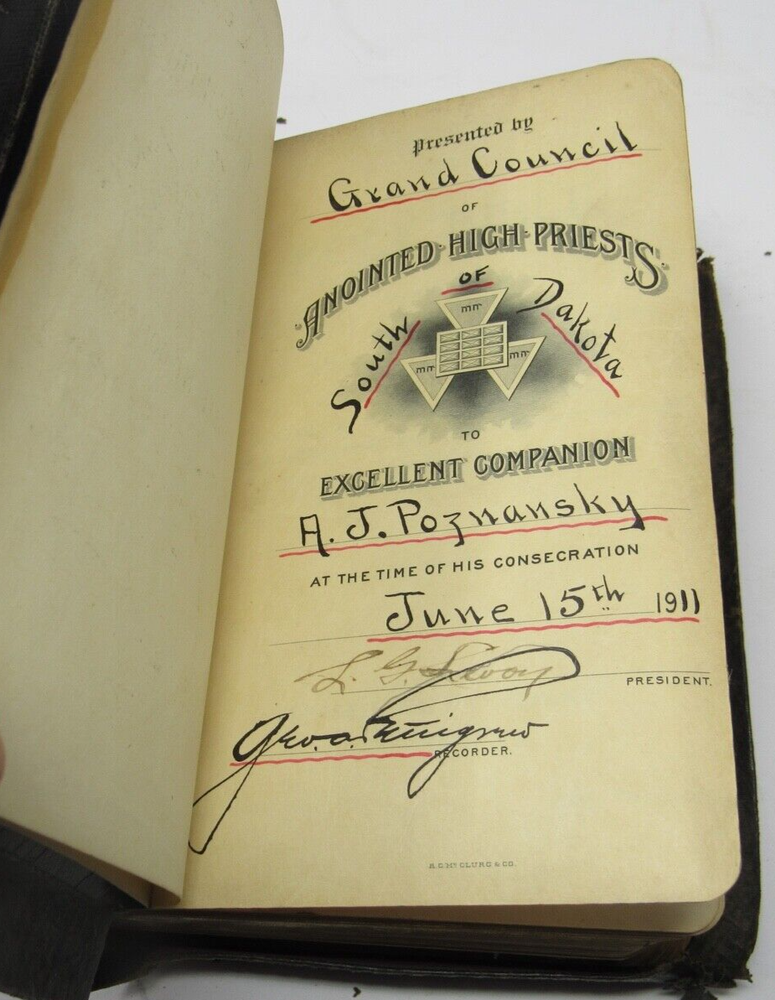 Presented by
Grand Council
OF
ANOINTED HIGH PRIESTS
OF
South Dakota
TO
EXCELLENT COMPANION
A. J. Poznansky
AT THE TIME OF HIS CONSECRATION
June 15th 1911
L. G.
PRESIDENT.
Geo. A.
RECORDER.
A. C. McCLURG & CO.